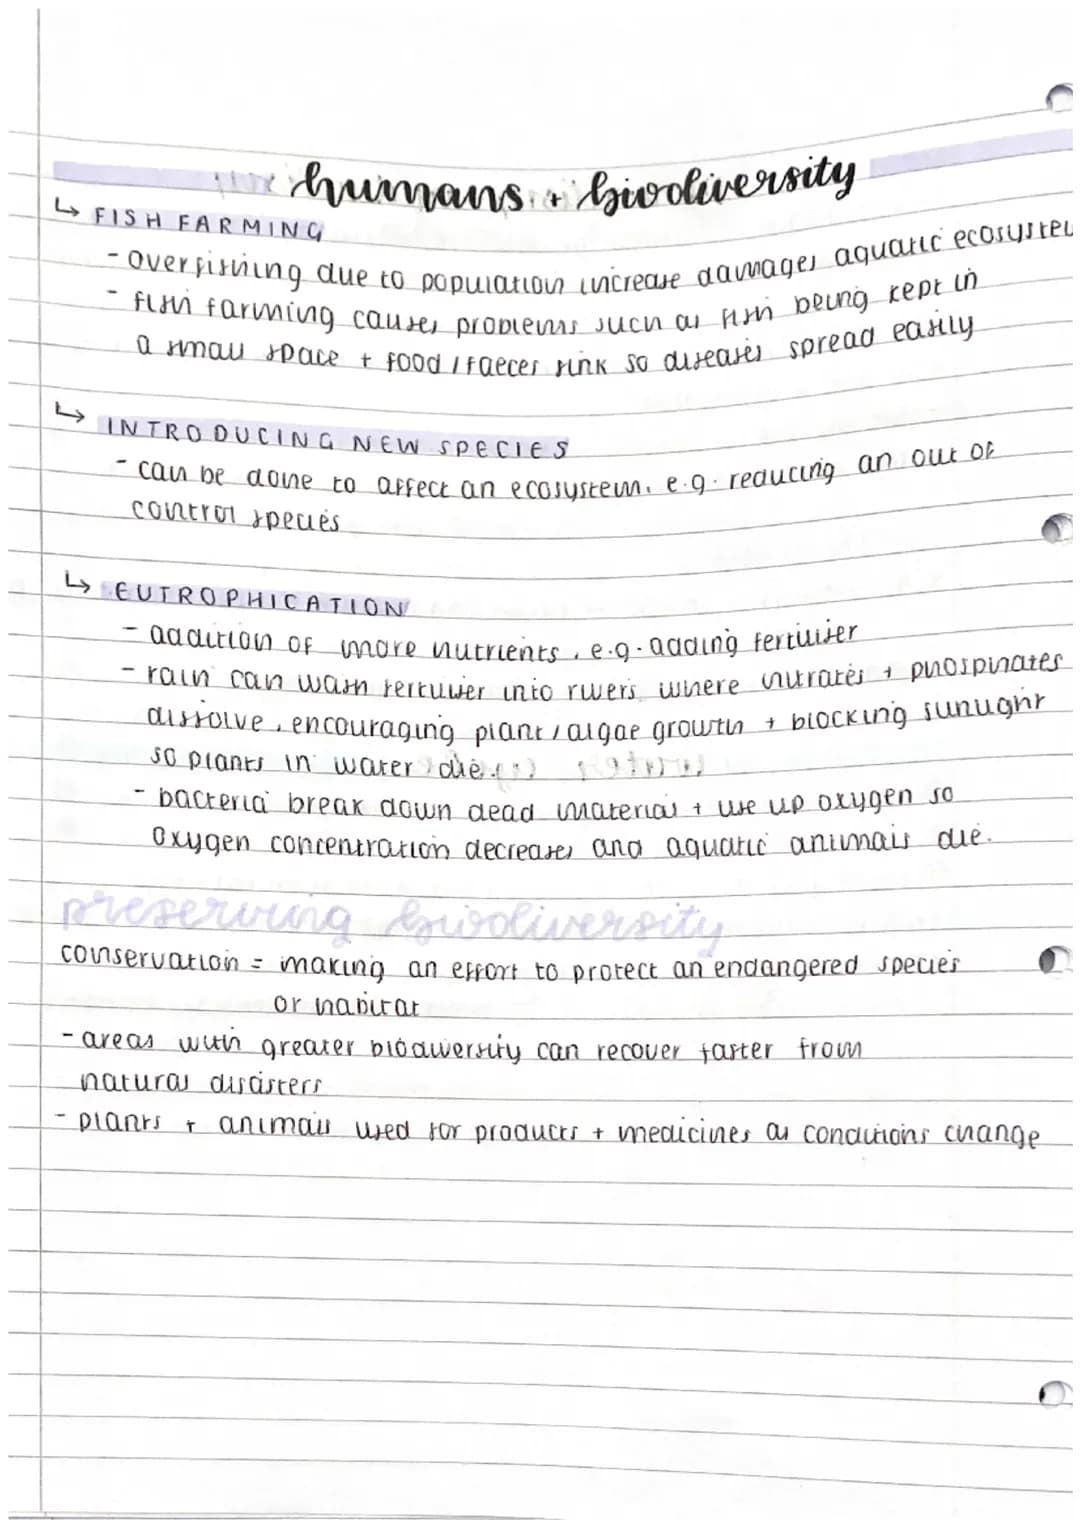 humans + biodiversity
↳ FISH FARMING
- overfishing due to population increase damages aquatic ecosystem
- fish farming causes problems such as fish being kept in
a small space + food / faeces sink so diseases spread easily
↳ INTRODUCING NEW SPECIES
- can be done to affect an ecosystem, e.g. reducing an out of
control species
↳ EUTROPHICATION
- addition of more nutrients, e.g. adding fertiliser
- rain can wash fertiliser into rivers where nitrates + phosphates
dissolve, encouraging plant / algae growth + blocking sunlight
so plants in water die.
- bacteria break down dead material + use up oxygen so
oxygen concentration decreases and aquatic animals die.
preserving biodiversity
conservation = making an effort to protect an endangered species
or habitat
- areas with greater biodiversity can recover faster from
natural disasters
- plants + animals used for products + medicines as conditions change